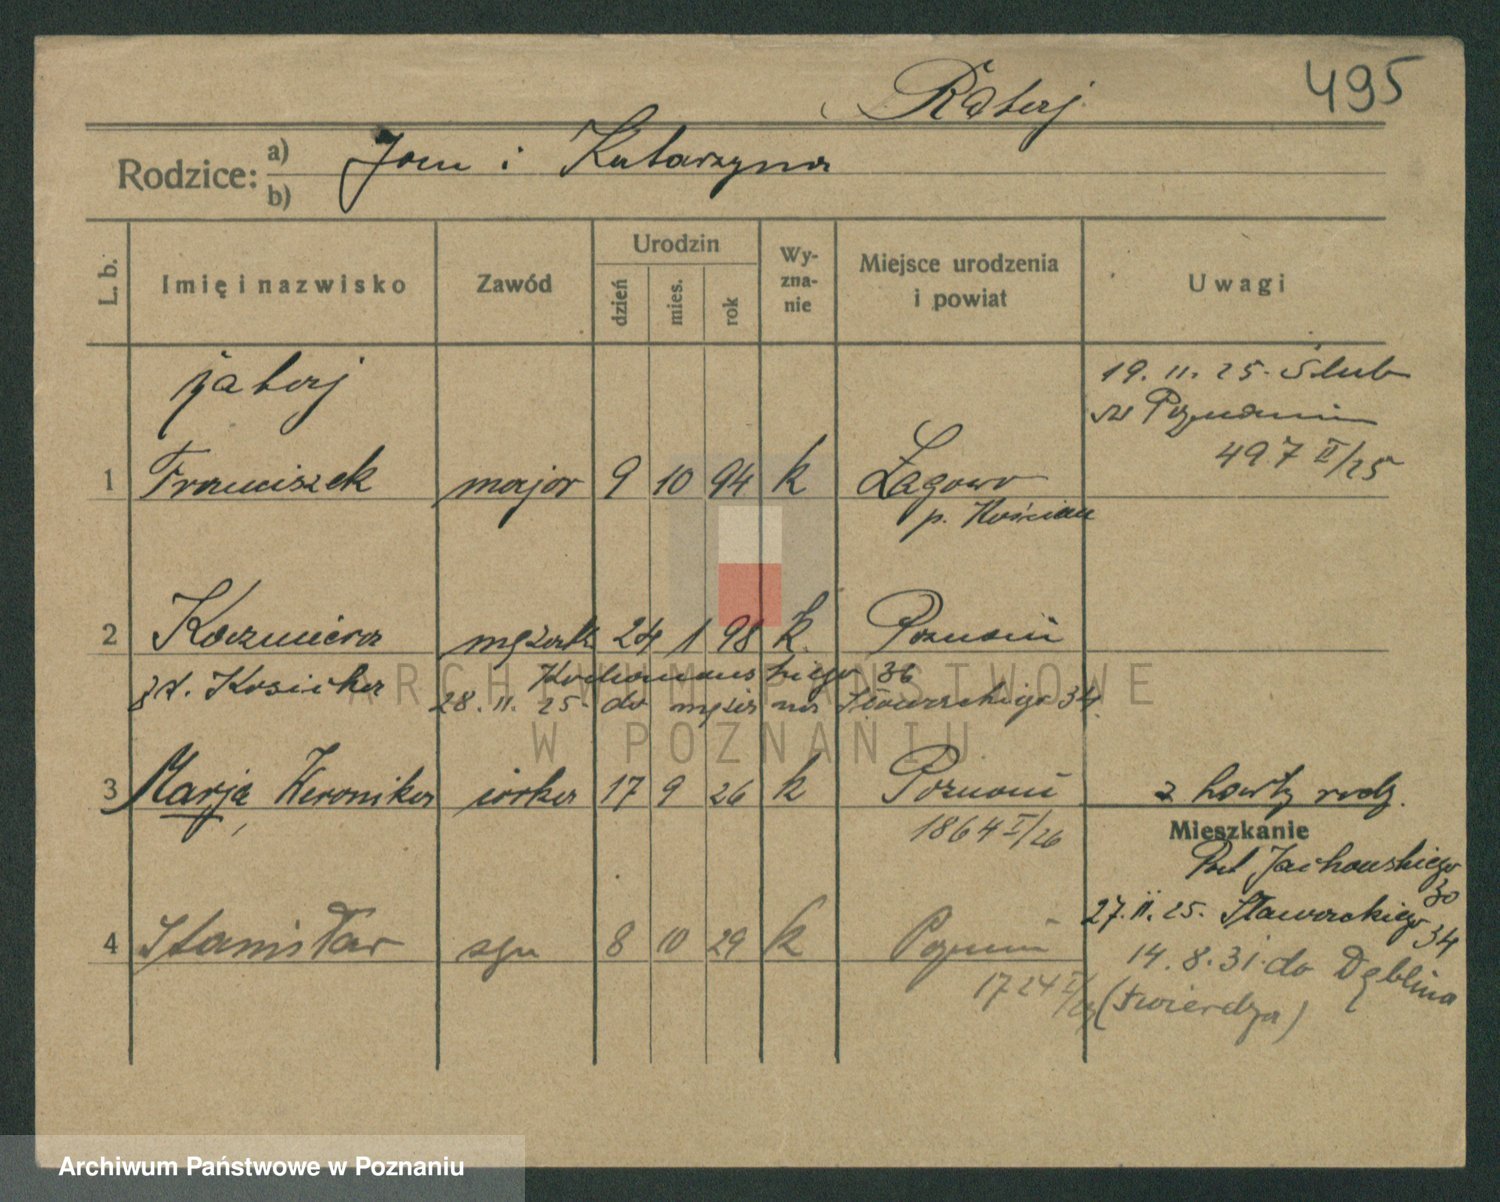 Raterj
495
Rodzice: a) b) Jan i Katarzyna
L. b.
Imię i nazwisko
Zawód
Urodzin
dzień
mies.
rok
Wy-
zna-
nie
Miejsce urodzenia
i powiat
Uwagi
19. 11. 25. Ślub
w Poznaniu
497 II/25
1 Franciszek major 9 10 94 k Łagowo
p. Kościan
2 Kazimiera mężatka 24 1 98 k. Poznań
zd. Kosicka Kochanowskiego 36
28. 11. 25. do męża na Słowackiego 34.
3 Marja Weronika córka 17 9 26 k Poznań z karty rodz.
1864 I/26
Mieszkanie
Jackowskiego
30
27. II. 25. Słowackiego 34
4 Stanisław syn 8 10 29 k Poznań
1724
14. 8. 31. do Dęblina
(twierdza)
ARCHIWUM PAŃSTWOWE
W POZNANIU
Archiwum Państwowe w Poznaniu